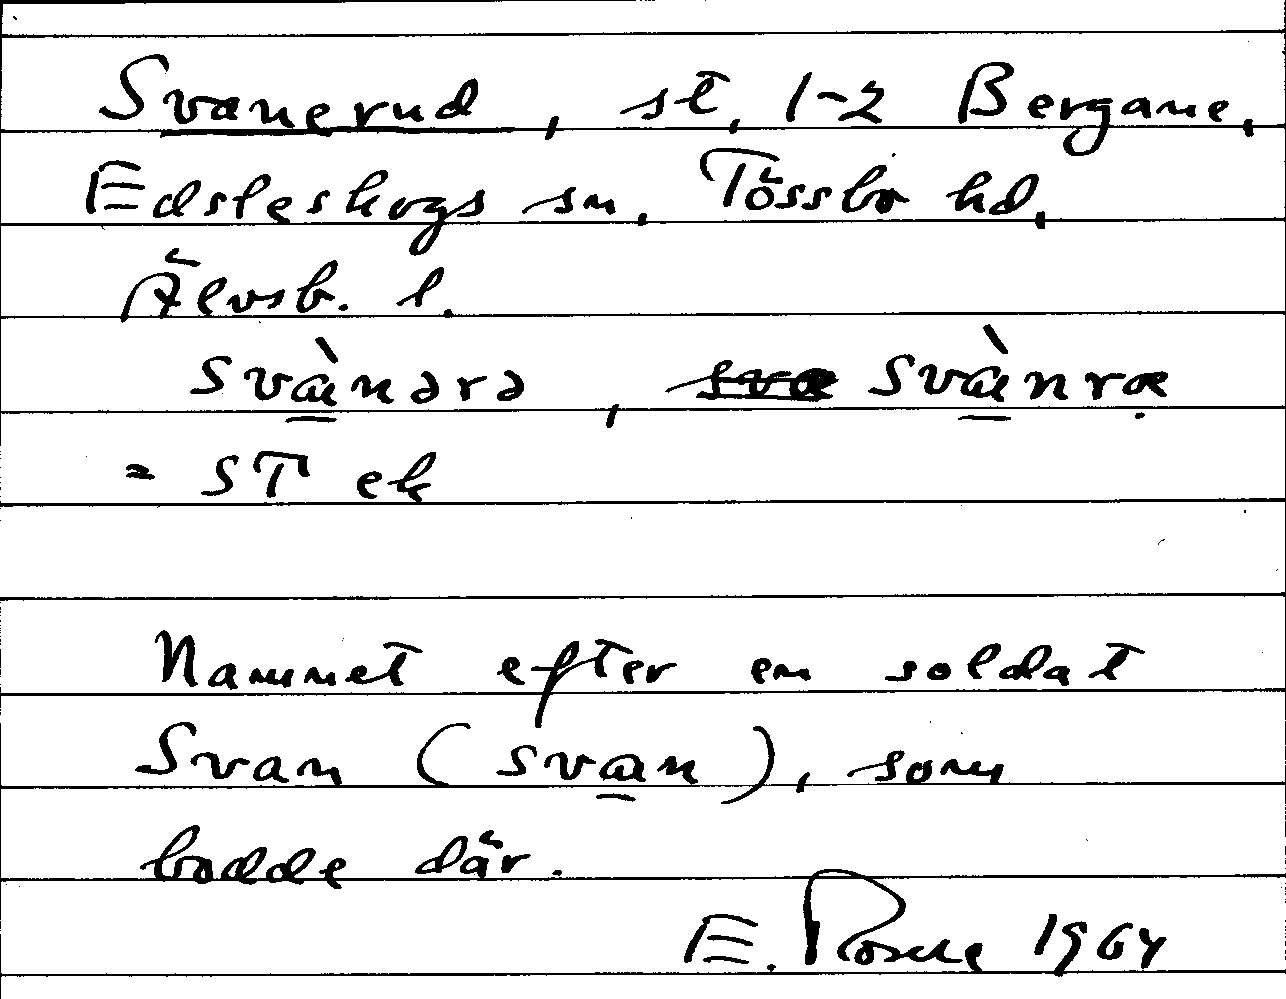 Svanerud, st, 1-2 Bergane,
Edsleskogs sn. Tössbo hd,
Älvsb. l.
svànərə, svànræ
= ST ek
Namnet efter en soldat
Svan (svan), som
bodde där.
E. 1964